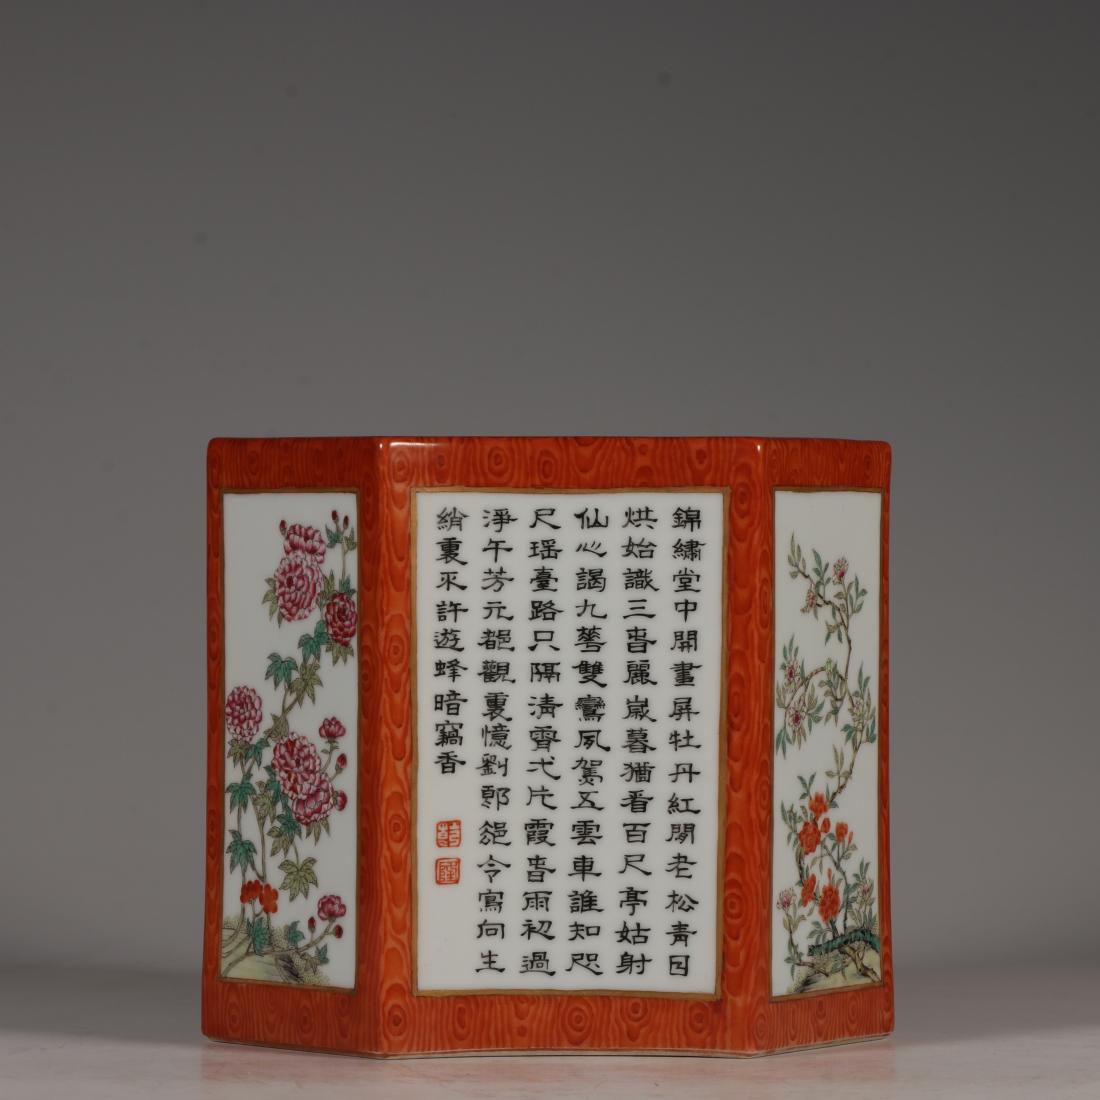 錦繡堂中開畫屏牡丹紅間老松青日
烘始識三春麗歲暮猶看百尺亭姑射
仙心謁九華雙鸞夙駕五雲車誰知咫
尺瑤臺路只隔清霄弌片霞春雨初過
淨午芳元都觀裏憶劉郎絕令寫向生
綃裏不許遊蜂暗竊香
乾
隆